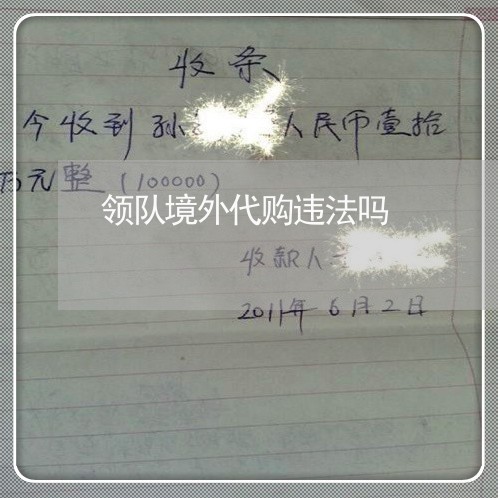 收条
今收到孙 人民币壹拾
万元整（100000）
领队境外代购违法吗
收款人
2011年6月2日